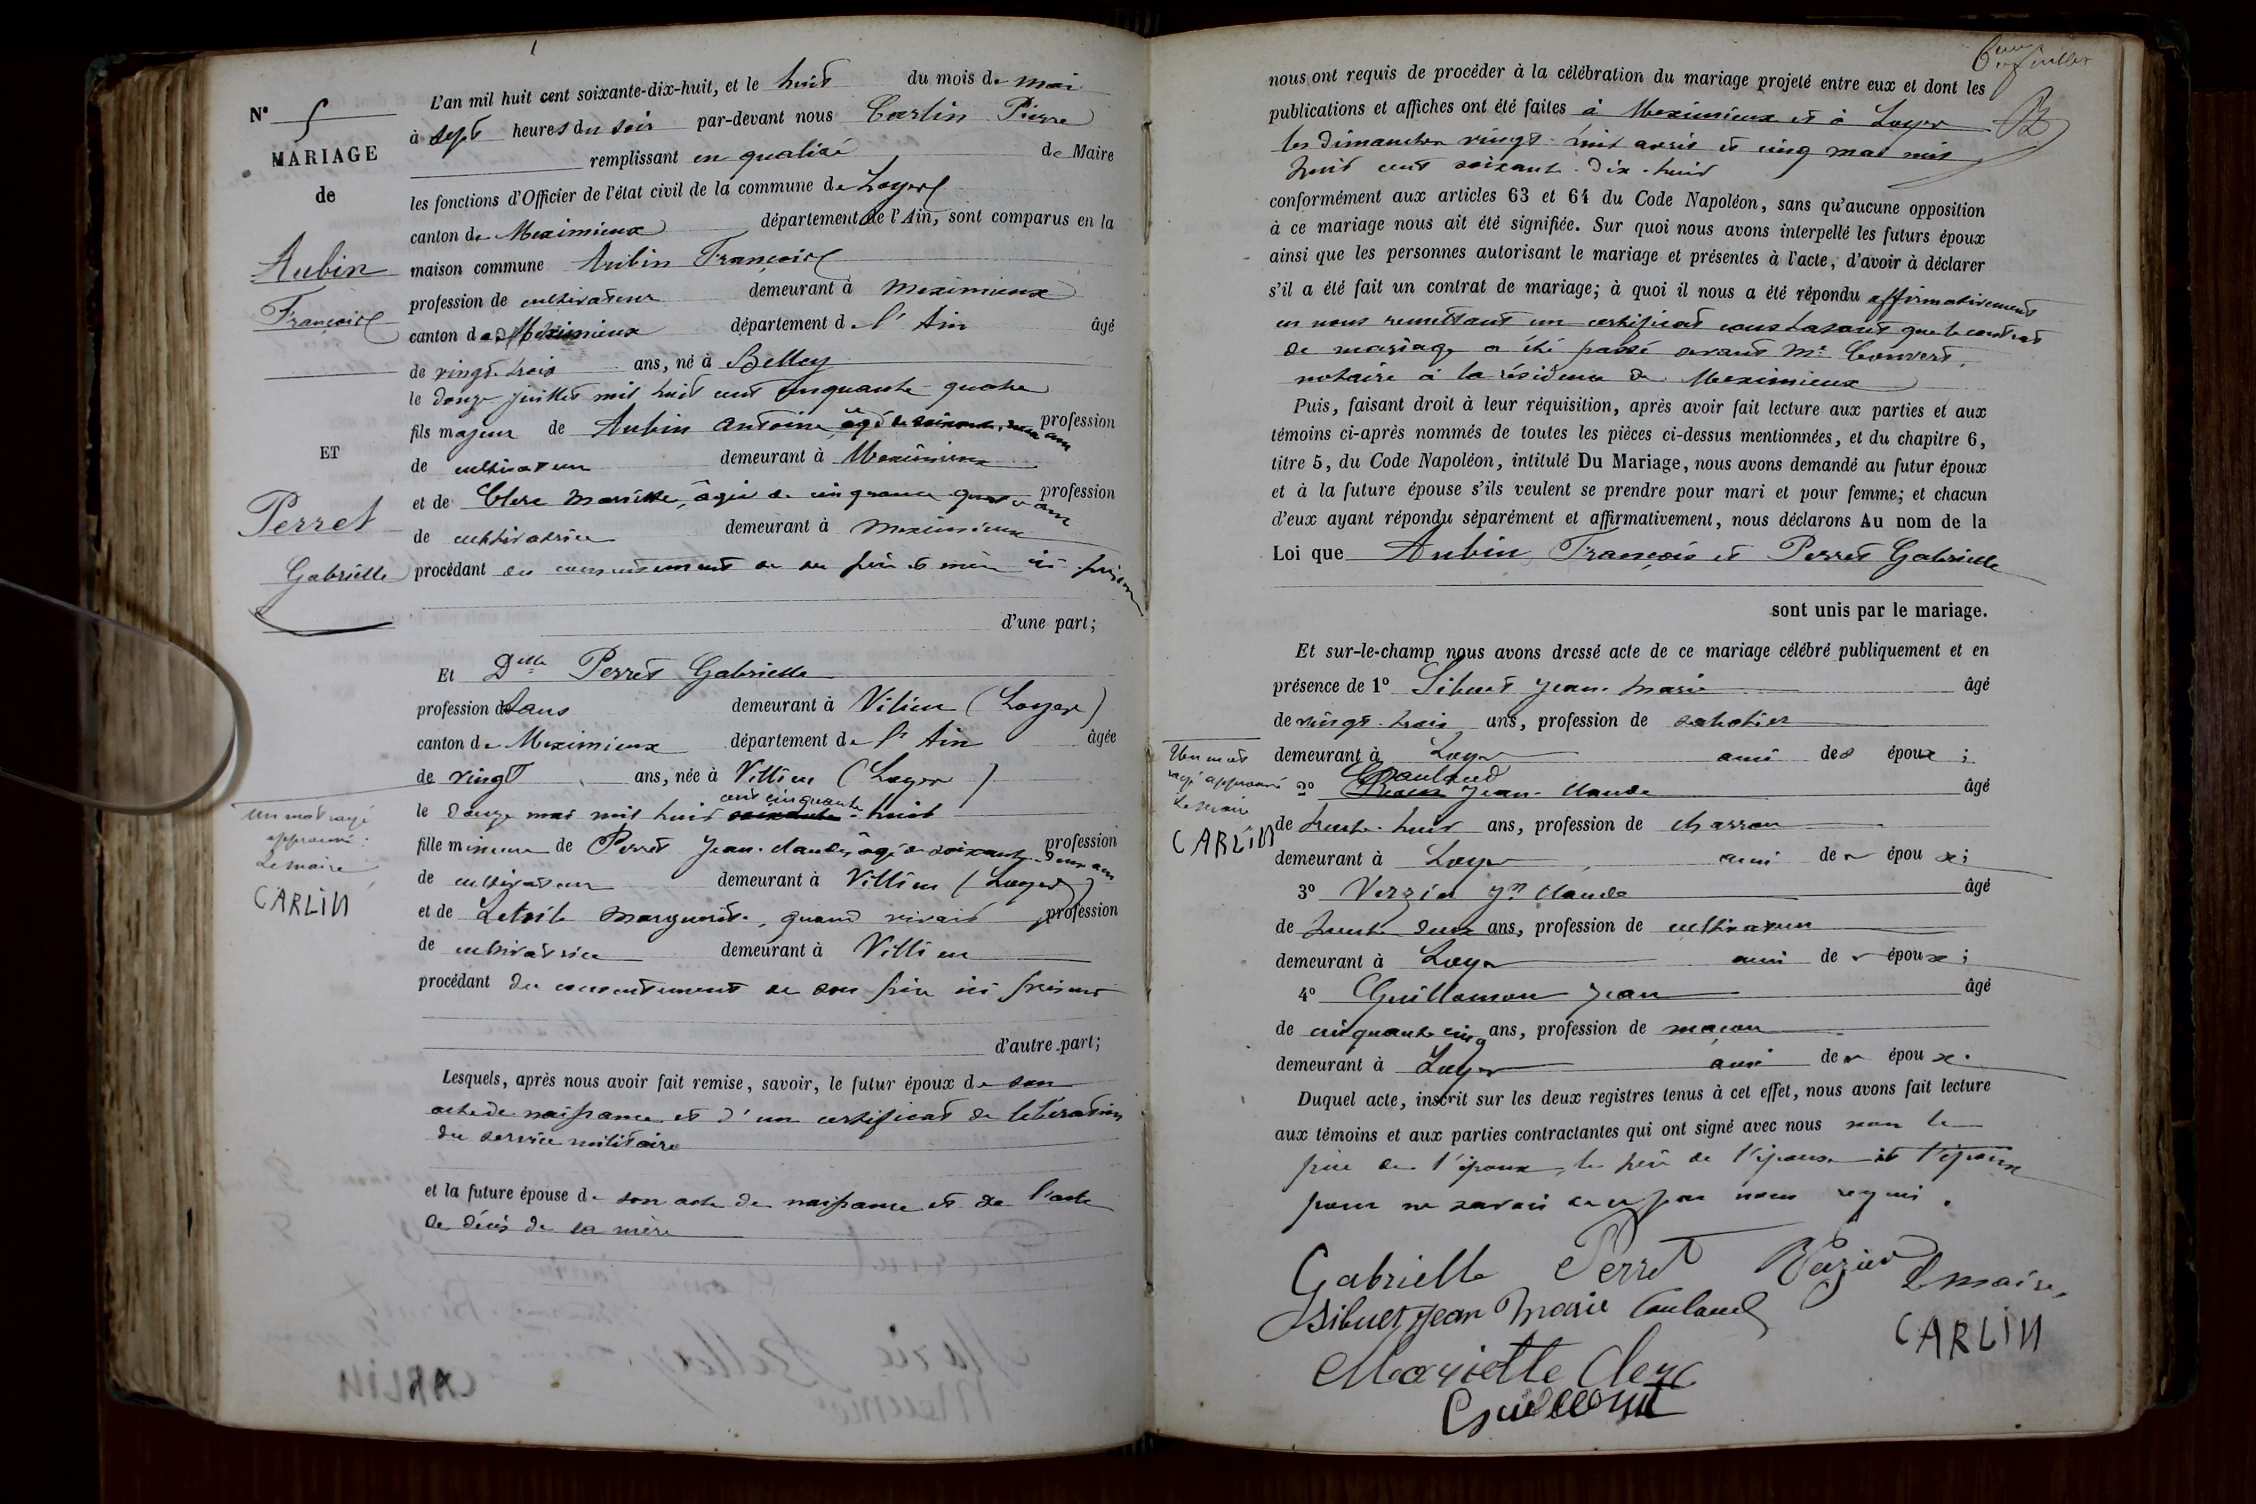 N° 5
MARIAGE
de
Aubin
François
ET
Perret
Gabrielle
un mot rayé
approuvé :
Le maire
CARLIN
L'an mil huit cent soixante-dix-huit, et le huit du mois de mai
à sept heures du soir par-devant nous Carlin Pierre
remplissant en qualité de Maire
les fonctions d'Officier de l'état civil de la commune de Loyes
canton de Meximieux département de l'Ain, sont comparus en la
maison commune Aubin François
profession de cultivateur demeurant à Meximieux
canton de Meximieux département de l'Ain âgé
de vingt-trois ans, né à Belley
le douze juillet mil huit cent cinquante-quatre
fils majeur de Aubin Antoine, âgé de soixante ans profession
de cultivateur demeurant à Meximieux
et de Clerc Mariette, âgée de cinquante quatre ans profession
de cultivatrice demeurant à Meximieux
procédant du consentement de ses père et mère ici présents
d'une part;
Et Delle Perret Gabrielle
profession de sans demeurant à Vilieu (Loyes)
canton de Meximieux département de l'Ain âgée
de vingt ans, née à Villieu (Loyes)
cent cinquante
le douze mai mil huit soixante-huit
fille mineure de Perret Jean-Claude, âgé de soixante-deux ans profession
de cultivateur demeurant à Villieu (Loyes)
et de Letoile Marguerite, quand vivait profession
de cultivatrice demeurant à Villieu
procédant du consentement de son père ici présent
d'autre part;
Lesquels, après nous avoir fait remise, savoir, le futur époux de son
acte de naissance et d'un certificat de libération
du service militaire
et la future épouse de son acte de naissance et de l'acte
de décès de sa mère
6eme feuillet
nous ont requis de procéder à la célébration du mariage projeté entre eux et dont les
publications et affiches ont été faites à Meximieux et à Loyes
les dimanches vingt-huit avril et cinq mai mil
huit cent soixante-dix-huit
conformément aux articles 63 et 64 du Code Napoléon, sans qu'aucune opposition
à ce mariage nous ait été signifiée. Sur quoi nous avons interpellé les futurs époux
ainsi que les personnes autorisant le mariage et présentes à l'acte, d'avoir à déclarer
s'il a été fait un contrat de mariage; à quoi il nous a été répondu affirmativement
en nous remettant un certificat constatant que le contrat
de mariage a été passé devant Me Convert,
notaire à la résidence de Meximieux
Puis, faisant droit à leur réquisition, après avoir fait lecture aux parties et aux
témoins ci-après nommés de toutes les pièces ci-dessus mentionnées, et du chapitre 6,
titre 5, du Code Napoléon, intitulé Du Mariage, nous avons demandé au futur époux
et à la future épouse s'ils veulent se prendre pour mari et pour femme; et chacun
d'eux ayant répondu séparément et affirmativement, nous déclarons Au nom de la
Loi que Aubin François et Perret Gabrielle
sont unis par le mariage.
Et sur-le-champ nous avons dressé acte de ce mariage célébré publiquement et en
présence de 1° Sibuet Jean-Marie âgé
de vingt-trois ans, profession de sabotier
demeurant à Loyes ami des époux ;
Un mot
rayé approuvé
Le maire
CARLIN
2° Coulaud Jean-Claude âgé
de trente-huit ans, profession de charron
demeurant à Loyes ami des époux ;
3° Verzier Jn Claude âgé
de trente-deux ans, profession de cultivateur
demeurant à Loyes ami des époux ;
4° Guillomon Jean âgé
de cinquante cinq ans, profession de maçon
demeurant à Loyes ami des époux.
Duquel acte, inscrit sur les deux registres tenus à cet effet, nous avons fait lecture
aux témoins et aux parties contractantes qui ont signé avec nous non le
père de l'époux, le père de l'épouse et l'époux
pour ne savoir de ce par nous requis.
Gabrielle Perret Verzier Le maire,
Sibuet Jean Marie Coulaud
CARLIN
Mariette Clerc